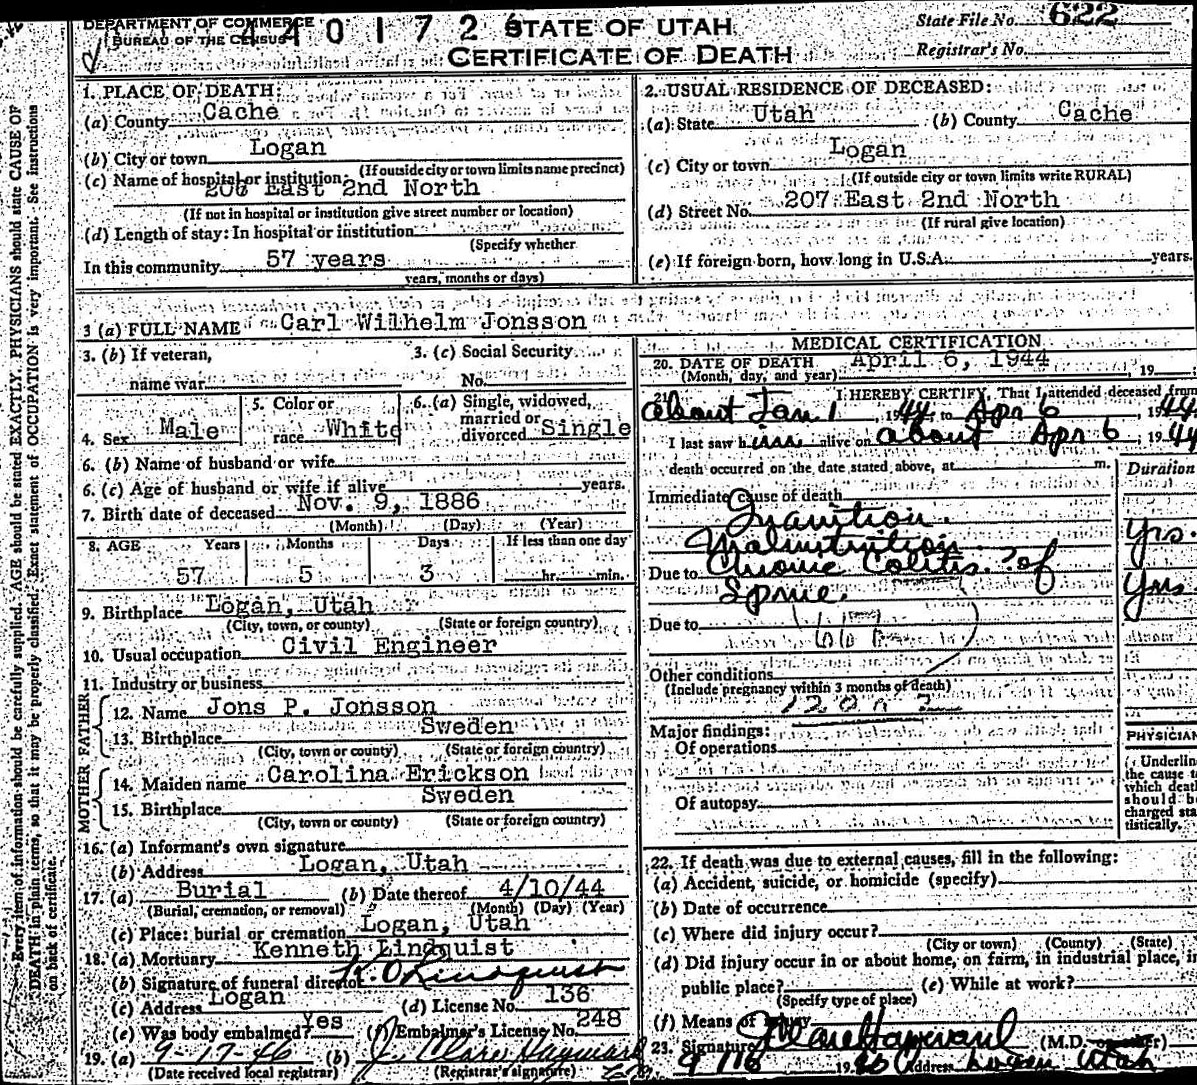 DEPARTMENT OF COMMERCE
BUREAU OF THE CENSUS
4 4 0 1 7 2 6
STATE OF UTAH
CERTIFICATE OF DEATH
State File No. 622
Registrar's No.
1. PLACE OF DEATH:
(a) County Cache
(b) City or town Logan
(If outside city or town limits name precinct)
(c) Name of hospital or institution:
207 East 2nd North
(If not in hospital or institution give street number or location)
(d) Length of stay: In hospital or institution
(Specify whether
In this community 57 years
years, months or days)
2. USUAL RESIDENCE OF DECEASED:
(a) State Utah (b) County Cache
(c) City or town Logan
(If outside city or town limits write RURAL)
(d) Street No. 207 East 2nd North
(If rural give location)
(e) If foreign born, how long in U.S.A. years.
3 (a) FULL NAME Carl Wilhelm Jonsson
3. (b) If veteran, 3. (c) Social Security
name war No.
4. Sex Male 5. Color or race White 6. (a) Single, widowed, married or divorced Single
6. (b) Name of husband or wife
6. (c) Age of husband or wife if alive years.
7. Birth date of deceased Nov. 9, 1886
(Month) (Day) (Year)
8. AGE Years Months Days If less than one day
57 5 3 hr. min.
9. Birthplace Logan, Utah
(City, town, or county) (State or foreign country)
10. Usual occupation Civil Engineer
11. Industry or business
FATHER
12. Name Jons P. Jonsson
13. Birthplace Sweden
(City, town or county) (State or foreign country)
MOTHER
14. Maiden name Carolina Erickson
15. Birthplace Sweden
(City, town or county) (State or foreign country)
16. (a) Informant's own signature
(b) Address Logan, Utah
17. (a) Burial (b) Date thereof 4/10/44
(Burial, cremation, or removal) (Month) (Day) (Year)
(c) Place: burial or cremation Logan, Utah
18. (a) Mortuary Kenneth Lindquist
(b) Signature of funeral director K. O Lindquist
(c) Address Logan (d) License No. 136
(e) Was body embalmed? Yes (f) Embalmer's License No. 248
19. (a) 9-17-46 (b) J. Clare Hayward
(Date received local registrar) (Registrar's signature)
MEDICAL CERTIFICATION
20. DATE OF DEATH April 6, 1944
(Month, day, and year) , 19 ;
21. I HEREBY CERTIFY, That I attended deceased from
about Jan 1 1944, to Apr 6, 1944
I last saw him alive on about Apr 6, 1944
death occurred on the date stated above, at m. Duration
Immediate cause of death
Inanition.
Malnutrition Yrs.
Due to Chronic Colitis. ? of Yrs
Sprue.
Due to
Other conditions
(Include pregnancy within 3 months of death)
Major findings:
Of operations
PHYSICIAN
Of autopsy
Underlin
the cause t
which deat
should b
charged sta
tistically.
22. If death was due to external causes, fill in the following:
(a) Accident, suicide, or homicide (specify)
(b) Date of occurrence
(c) Where did injury occur?
(City or town) (County) (State)
(d) Did injury occur in or about home, on farm, in industrial place, in
public place? (e) While at work?
(Specify type of place)
(f) Means of injury
23. Signature J Clare Hayward (M.D. or other)
Address Logan Utah
Every item of information should be carefully supplied. AGE should be stated EXACTLY. PHYSICIANS should state CAUSE OF
DEATH in plain terms, so that it may be properly classified. Exact statement of OCCUPATION is very important. See instructions
on back of certificate.